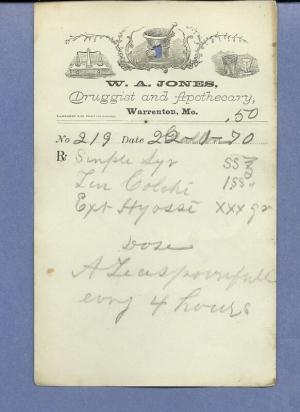 W. A. JONES,
Druggist and Apothecary,
Warrenton, Mo.
.50
No. 219 Date 22-1-70
℞ Simple Syr ss
Tin Colchi iss
Ext Hyossi xxx gr
Dose
A Teaspoonfull
evry 4 hours